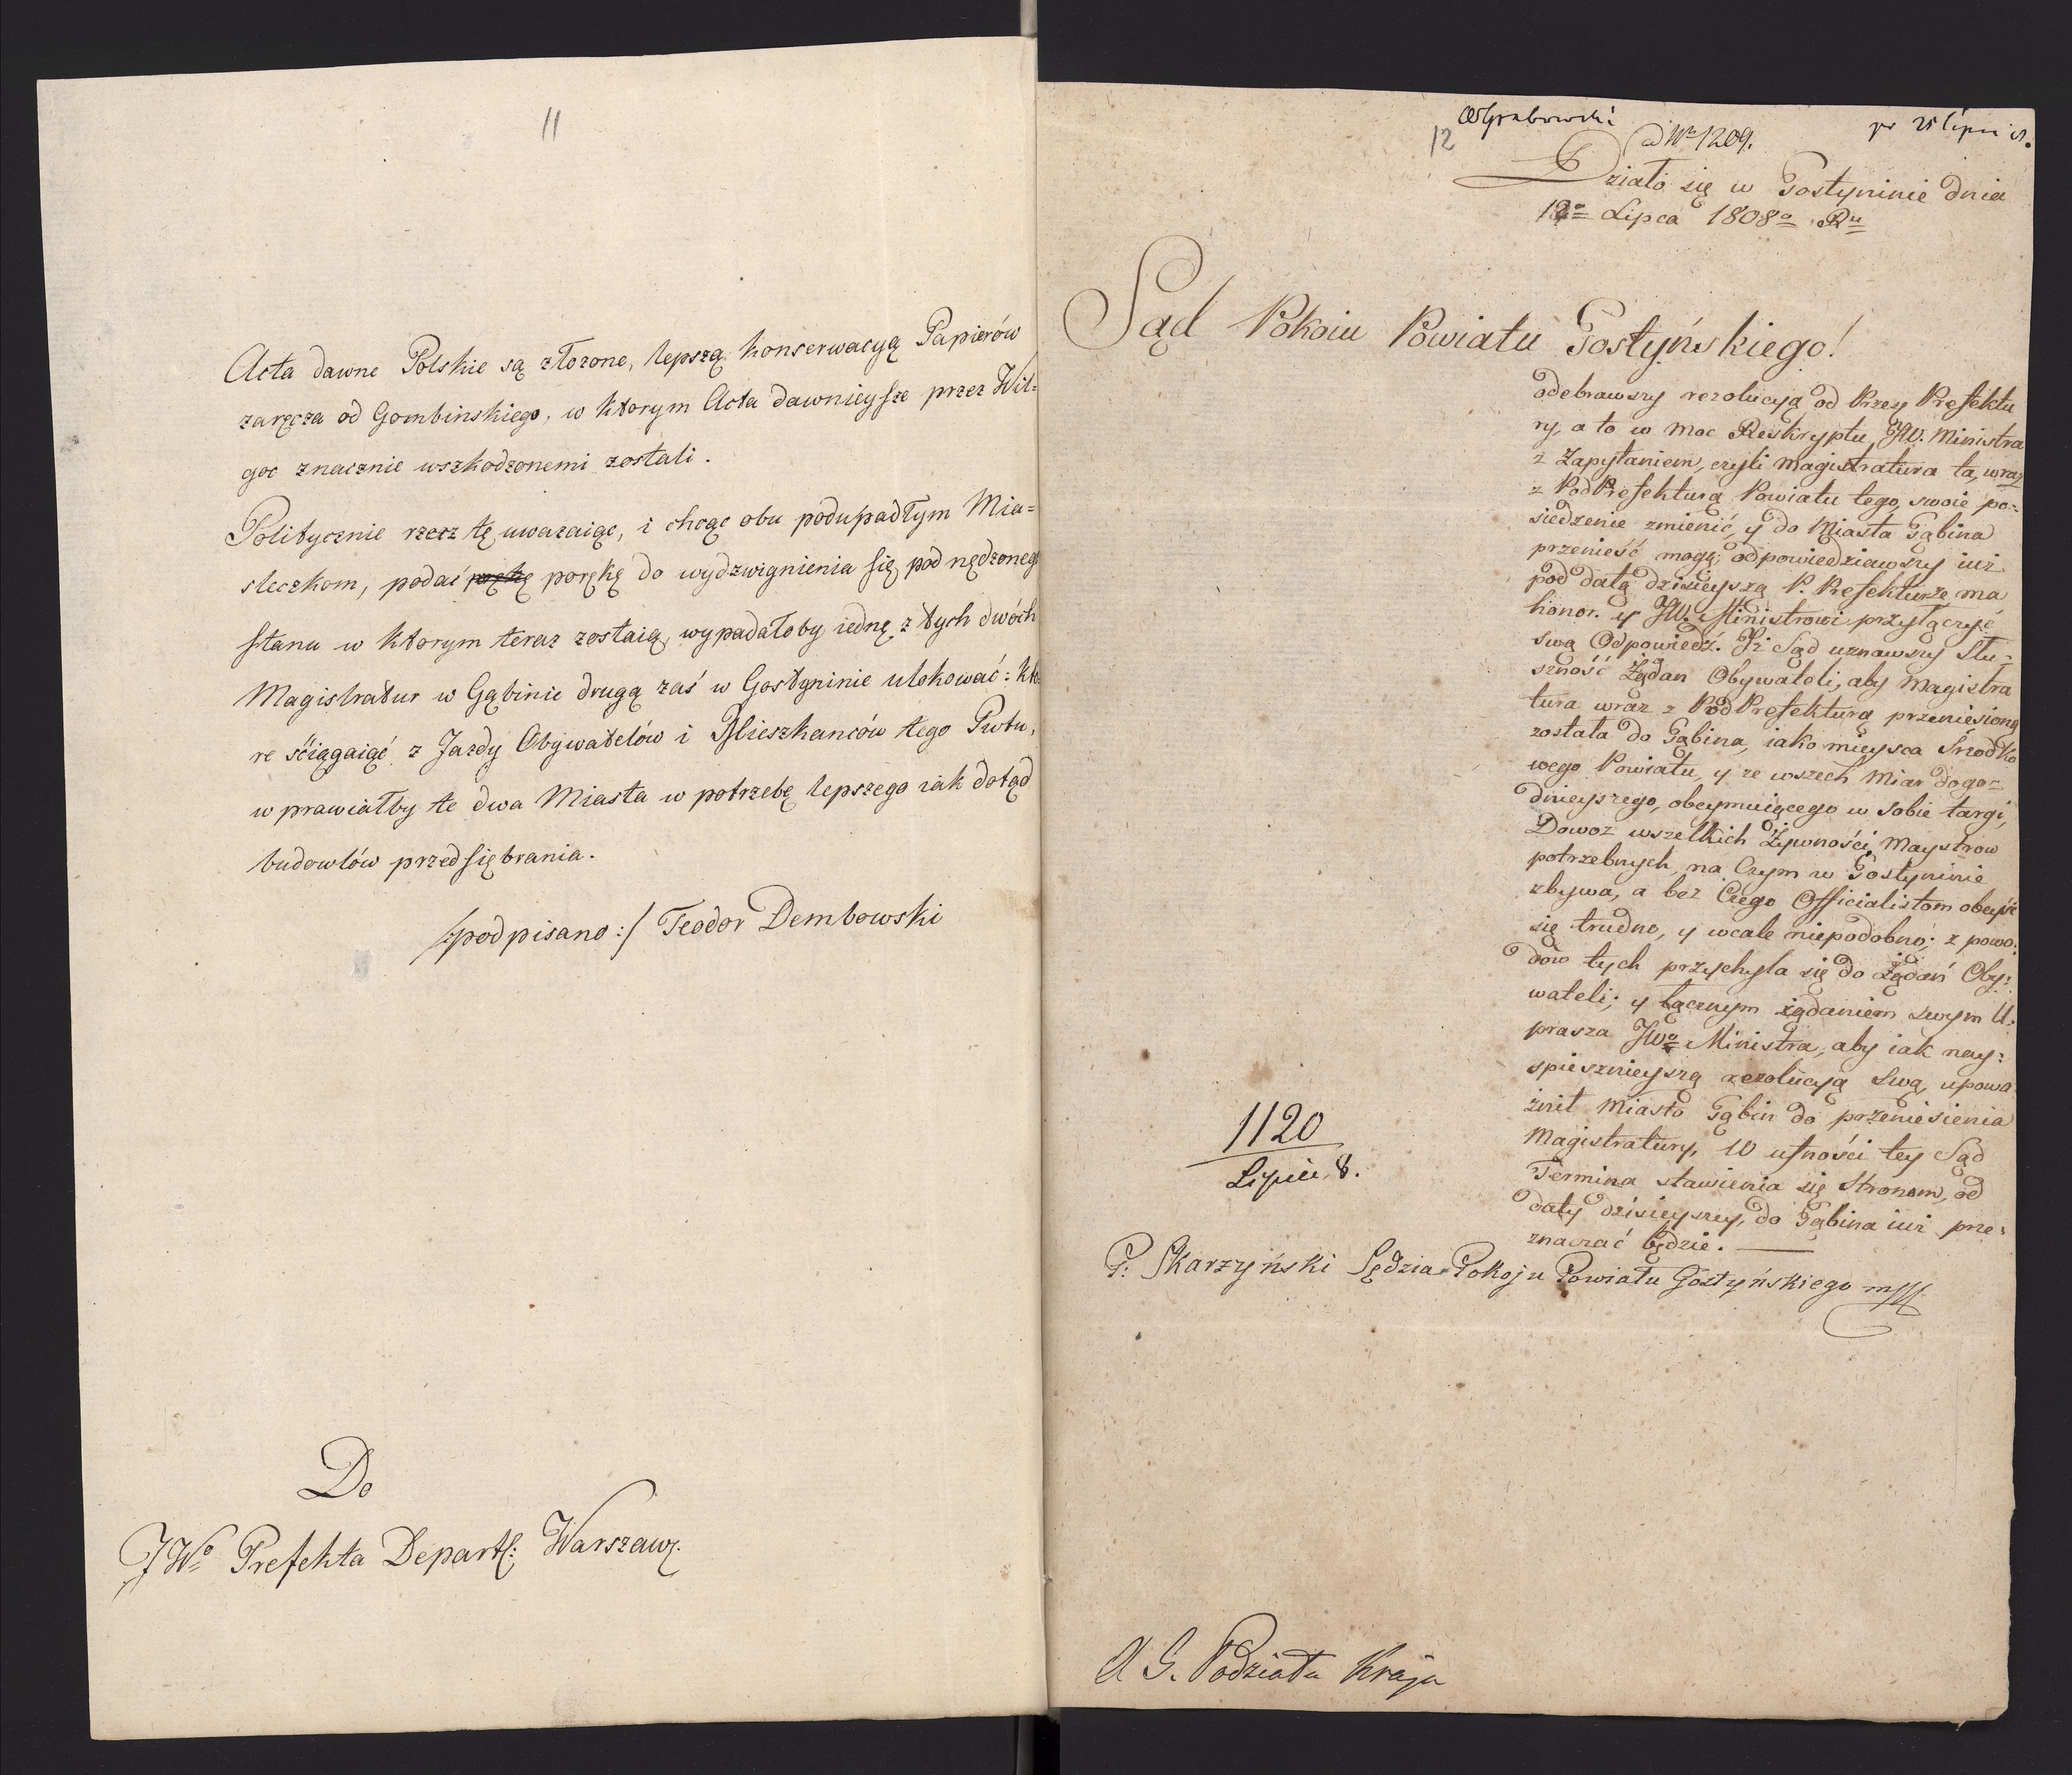 11
Acta dawne Polskie są złozone, lepszą konserwacyą Papierów
zaręcza od Gombinskiego, w ktorym Acta dawnieysze przez Wil=
goc znacznie uszkodzonemi zostali.
Politycznie rzecz tę uwazaiąc, i chcąc obu podupadłym Mia=
steczkom, podać porękę do wydzwignienia się, pod nędznego
stanu w ktorym teraz zostaią, wypadałoby iednę z tych dwóch
Magistratur w Gąbinie drugą zaś w Gostyninie ulokować: kto:
re ściągaiąć z Jazdy Obywatelów i Mieszkanców tego Pwtu,
w prawiałby te dwa Miasta w potrzebę lepszego iak dotąd
budowlów przedsiębrania.
/:podpisano:/ Teodor Dembowski
Do
JWo Prefekta Departt: Warszawz.
12
ad No 1209.
Działo się w Gostyninie dnia
Lipca 1808o Ru
Sąd Pokoiu Powiatu Gostyńskiego!
odebrawszy rezolucyą od Przey Prefektu
ry, a to w moc Reskryptu JW. Ministra
z Zapytaniem, czyli Magistratura ta, wraz
z PodPrefekturą Powiatu tego, swoie po=
siedzenie zmienić, y do Miasta Gąbina
przenieść mogą; odpowiedziawszy iuż
pod datą dzisieyszą P. Prefekturze ma
honor. y JW. Ministrowi przyłączyć
swą Odpowiedź. Iż Sąd uznawszy Słu=
szność Żądan Obywateli, aby Magistra
tura wraz z PodPrefekturą przeniesioną
została do Gąbina, iako mieysca Srzodko
wego Powiatu, y ze wszech Miar dogo=
dnieyszego, obeymuiącego w Sobie targi,
Dowoz wszelkich Żywności, Maystrow
potrzebnych, na Czym w Gostyninie
zbywa, a bez Czego Officialistom obeyść
się trudno, y wcale niepodobno; z powo:
dow tych przychyla się do Żądań Oby:
wateli; y łącznym żądaniem swym U:
prasza JWo Ministra, aby iak nay:
spieszniejszą rezolucyą Swą, upowa
żnił Miasto Gąbin do przeniesienia
Magistratury, W ufności tey Sąd
Termina stawienia się Stronom, od
daty dzisieyszey, do Gąbina iuż prze:
znaczać będzie.
1120
Lipiec 8.
P: Skarzyński Sędzia Pokoju Powiatu Gostyńskiego
A G. Podziału Kraju